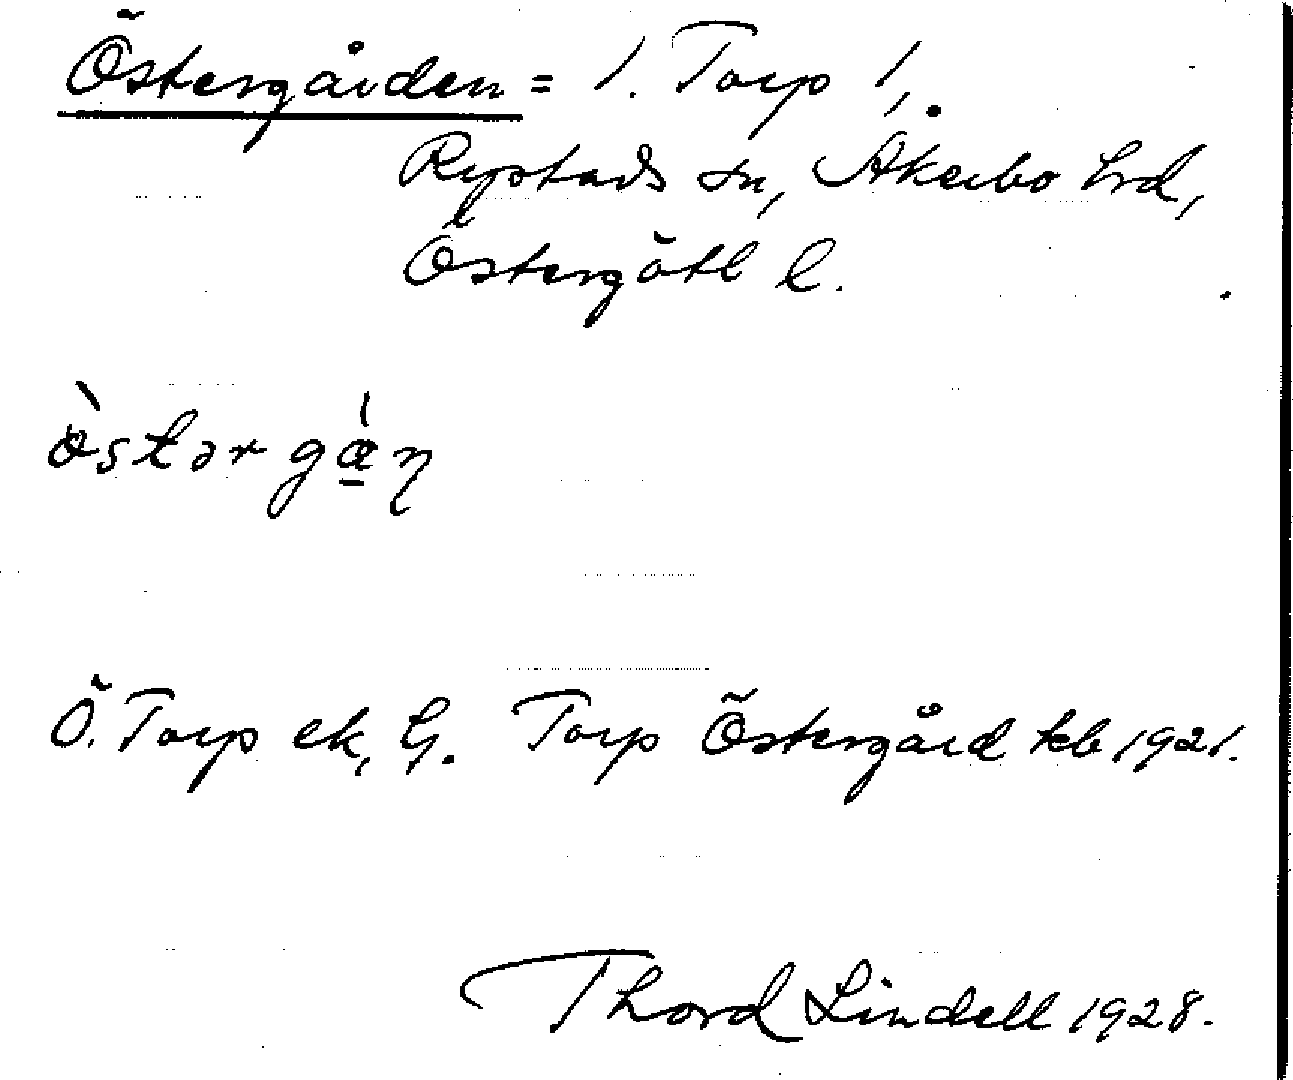 Östergården = 1. Torp 1,
Rystads sn, Åkerbo hrd,
Östergötl l.
Ö. Torp ek, G. Torp Östergård kb 1921.
Thord Lindell 1928.